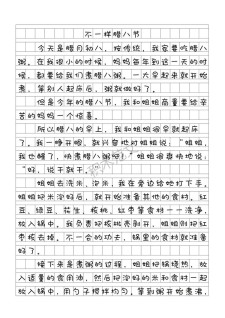 不一样腊八节
今天是腊月初八，按传统，我家要吃腊八
粥。在我很小的时候，妈妈每年到这一天的时
候，都要给我们煮腊八粥。一大早起来就开始
煮，等别人起床后，粥就做好了。
但是今年的腊八节，我和姐姐商量要给辛
苦的妈妈一个惊喜。
所以腊八的早上，我和姐姐很早就起床
了。我一睁开眼，就兴奋地对姐姐说：“姐姐，
我也醒了，快煮腊八粥去吧！”姐姐很爽快地说：
“好，说干就干。
姐姐去洗米、泡米，我在旁边给她打下手。
姐姐把米泡好后，就开始准备其他的食材。红
豆、绿豆、花生、核桃、红枣等食材一一洗净，
放入锅中。我负责把核桃壳剥开，姐姐则把红
枣核去掉。不一会的功夫，锅里的食材就准备
好了。
接下来是煮粥的过程。姐姐把锅烧热，放
入适量的食用油，然后把泡好的米和食材一起
放入锅中，用勺子搅拌均匀。等到粥开始煮沸，